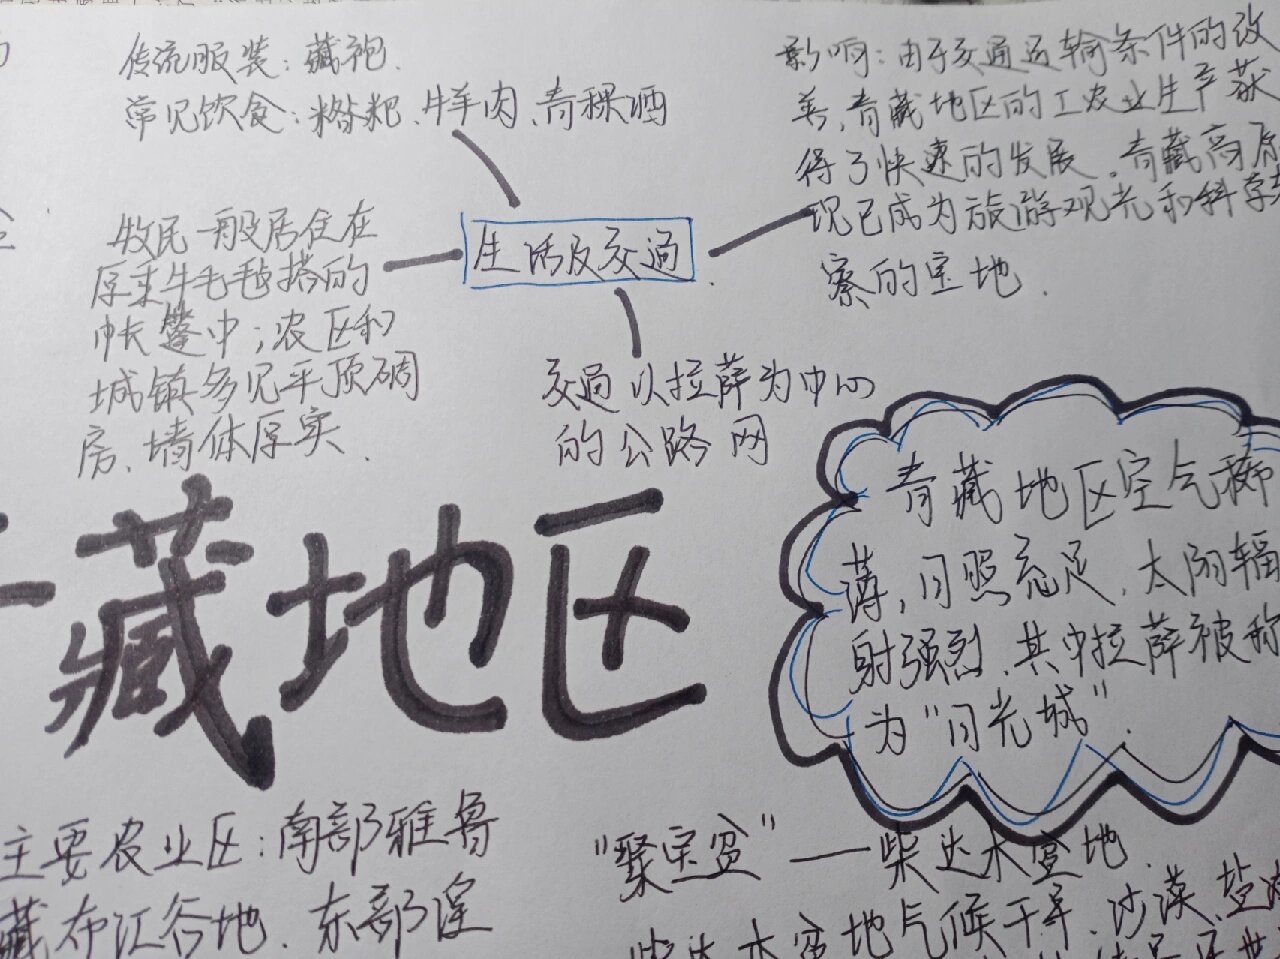 传流服装：藏袍.
常见饮食：糌粑、牛羊肉、青稞酒
牧民一般居住在
厚来牛毛毡搭的
帐篷中；农区和
城镇多见平顶碉
房、墙体厚实.
生活及交通
影响：由于交通运输条件的改
善，青藏地区的工农业生产获
得了快速的发展，青藏高原
现已成为旅游观光和科学考
察的宝地.
交通以拉萨为中心
的公路网
藏地区
青藏地区空气稀
薄，日照充足，太阳辐
射强烈，其中拉萨被称
为“日光城”.
主要农业区：南部雅鲁
藏布江谷地、东部湟
“聚宝盆”——柴达木盆地.
柴达木盆地气候干旱，沙漠、盐